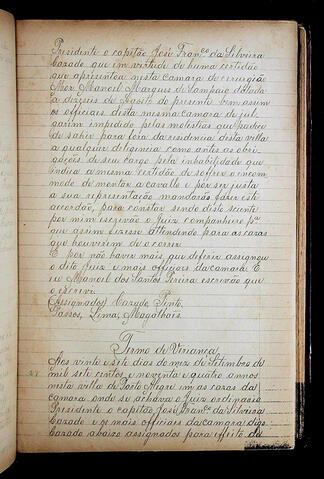 Presidente o capitão José Franco da Silveira
Cazado que em virtude de huma certidão
que aprezentou nesta Camara de cirurgião
Mór Manoel Marques de Sampaio datada
a dezeseis de Agosto do presente bem assim
os officiaes desta mesma camara de jul-
garem impedido pelas molestias que padece
de sahir para fora da residencia desta villa
a qualquer deligencia como antes as obri-
gações de seu cargo pela inhabilidade que
indica a mesma certidão de soffrer o incom
modo de montar a cavallo e por ser justa
a sua representação mandarão fazer este
accordão, para constar sendo disto sciente
por mim escrivão o Juiz companheiro pa
que assim fizesse attendendo para as cazas
que houverem de o correr.
E por não haver mais que deferir assignou
o dito Juiz e mais officiaes da camara. E
eu Manoel dos Santos Pereira escrivão que
o escrevi.
(Assignados) Cazado, Pinto,
Passos, Lima, Magalhães.
Termo de Veriança
Aos vinte e seis dias do mez de Setembro de
mil sete centos e noventa e quatro annos
nesta villa de Porto Alegre em as cazas da
camara onde se achava o Juiz ordinario
Presidente o capitão José Franco da Silveira
Cazado e os mais officiaes da camara digo
Cazado abaixo assignados para effeito de